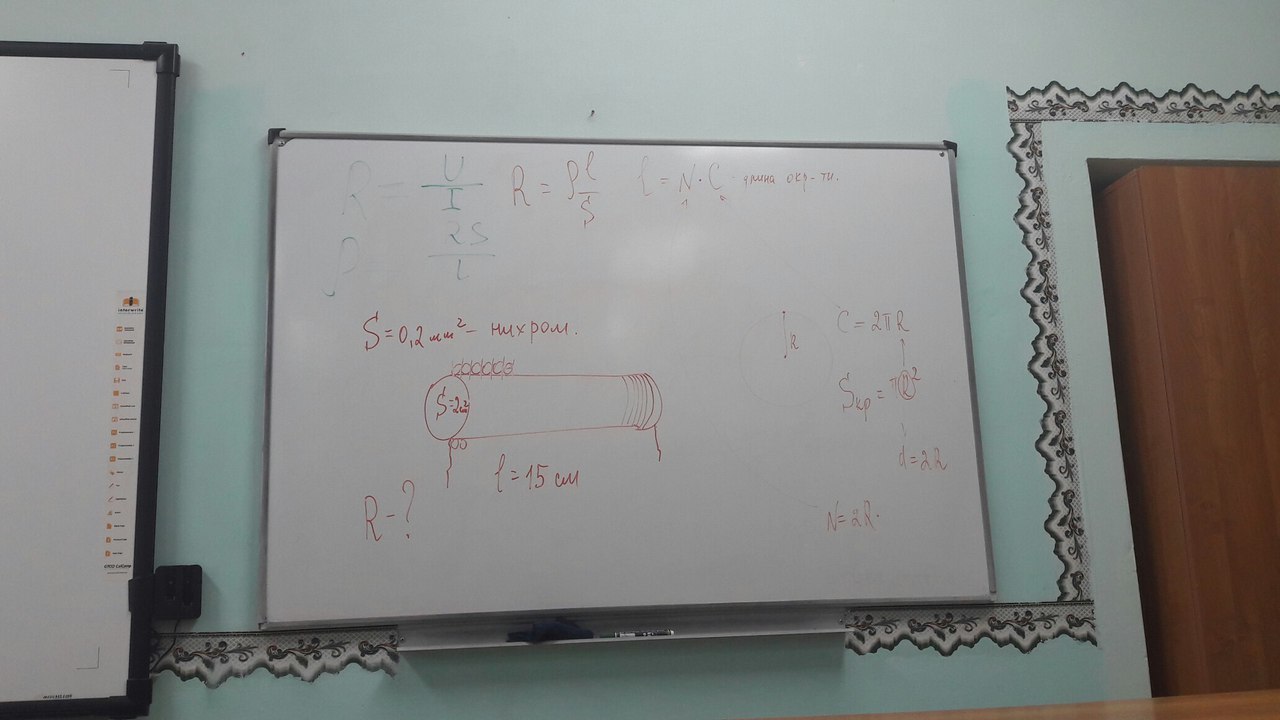 R = U/I
R = ρ l/S
l = N · C - длина окр-ти.
ρ = RS/l
S = 0,2 мм² - нихром.
S = 2см²
l = 15 см
R - ?
R
C = 2πR
Sкр = πR²
d = 2R
N = 2R.
interwrite